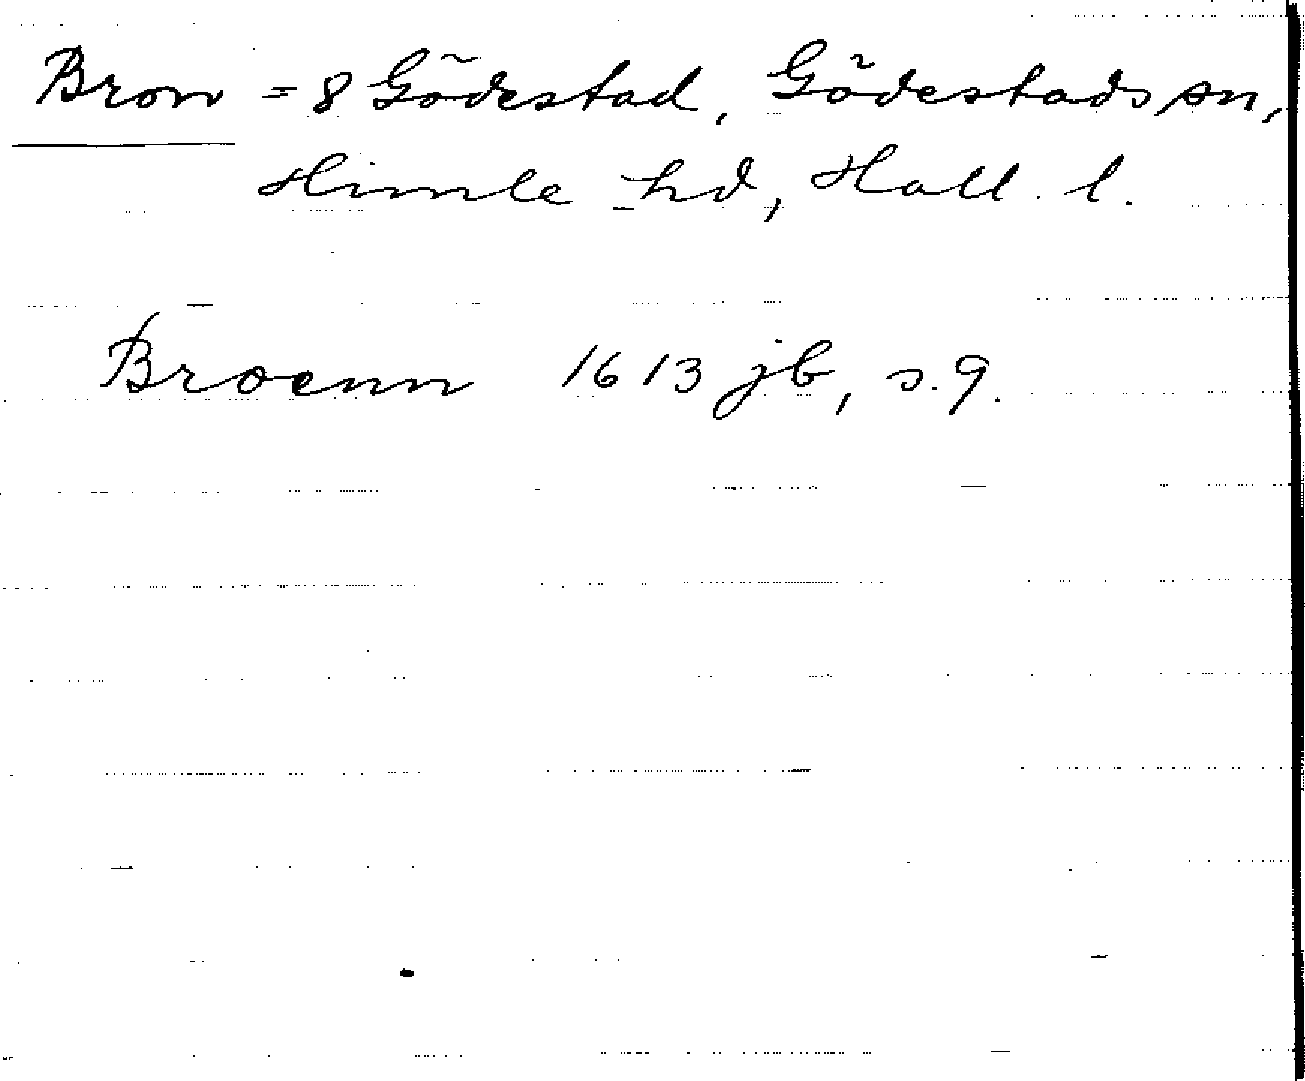 Bron = 8 Gödestad, Gödestads sn,
Himle hd, Hall. l.
Broenn 1613 jb, s. 9.